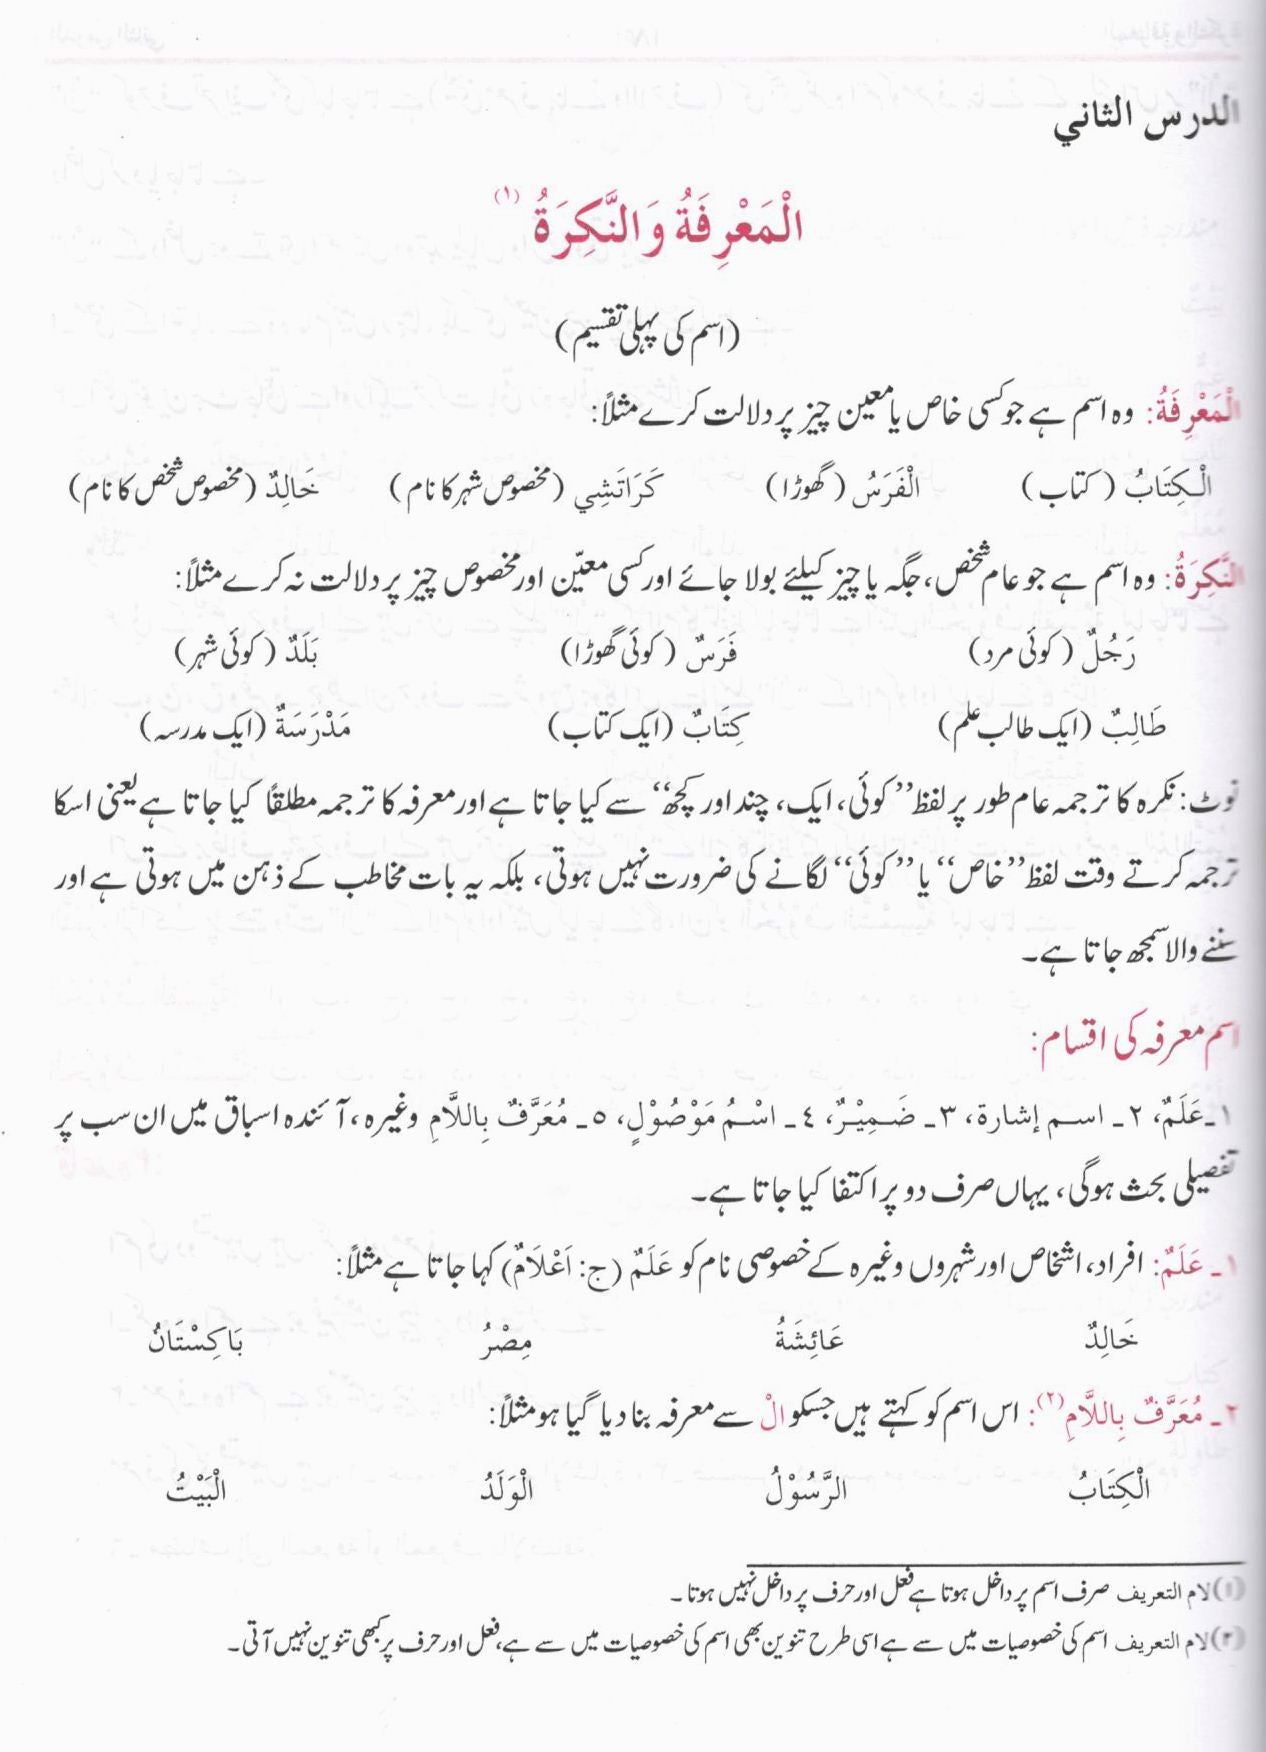 الدرس الثاني
الْمَعْرِفَةُ وَالنَّكِرَةُ (١)
(اسم کی پہلی تقسیم)
الْمَعْرِفَةُ: وہ اسم ہے جو کسی خاص یا معین چیز پر دلالت کرے مثلاً:
الْكِتَابُ (کتاب) الْفَرَسُ (گھوڑا) كَرَاتَشِي (مخصوص شہر کا نام) خَالِدٌ (مخصوص شخص کا نام)
النَّكِرَةُ: وہ اسم ہے جو عام شخص، جگہ یا چیز کیلئے بولا جائے اور کسی معیّن اور مخصوص چیز پر دلالت نہ کرے مثلاً:
رَجُلٌ (کوئی مرد) فَرَسٌ (کوئی گھوڑا) بَلَدٌ (کوئی شہر)
طَالِبٌ (ایک طالب علم) كِتَابٌ (ایک کتاب) مَدْرَسَةٌ (ایک مدرسہ)
نوٹ: نکرہ کا ترجمہ عام طور پر لفظ ”کوئی، ایک، چند اور کچھ“ سے کیا جاتا ہے اور معرفہ کا ترجمہ مطلقًا کیا جاتا ہے یعنی اسکا
ترجمہ کرتے وقت لفظ ”خاص“ یا ”کوئی“ لگانے کی ضرورت نہیں ہوتی، بلکہ یہ بات مخاطب کے ذہن میں ہوتی ہے اور
سننے والا سمجھ جاتا ہے۔
اسم معرفہ کی اقسام:
١ـ عَلَمٌ، ٢ـ اسم إشارة، ٣ـ ضَمِيْرٌ، ٤ـ اسْمُ مَوْصُوْلٍ، ٥ـ مُعَرَّفٌ بِاللَّامِ وغیرہ، آئندہ اسباق میں ان سب پر
تفصیلی بحث ہوگی، یہاں صرف دو پر اکتفا کیا جاتا ہے۔
١ـ عَلَمٌ: افراد، اشخاص اور شہروں وغیرہ کے خصوصی نام کو عَلَمٌ (ج: اَعْلَامٌ) کہا جاتا ہے مثلاً:
خَالِدٌ عَائِشَةُ مِصْرُ بَاكِسْتَانُ
٢ـ مُعَرَّفٌ بِاللَّامِ(٢): اس اسم کو کہتے ہیں جسکو الْ سے معرفہ بنا دیا گیا ہو مثلاً:
الْكِتَابُ الرَّسُوْلُ الْوَلَدُ الْبَيْتُ
(١) لام التعریف صرف اسم پر داخل ہوتا ہے فعل اور حرف پر داخل نہیں ہوتا۔
(٢) لام التعریف اسم کی خصوصیات میں سے ہے اسی طرح تنوین بھی اسم کی خصوصیات میں سے ہے، فعل اور حرف پر کبھی تنوین نہیں آتی۔